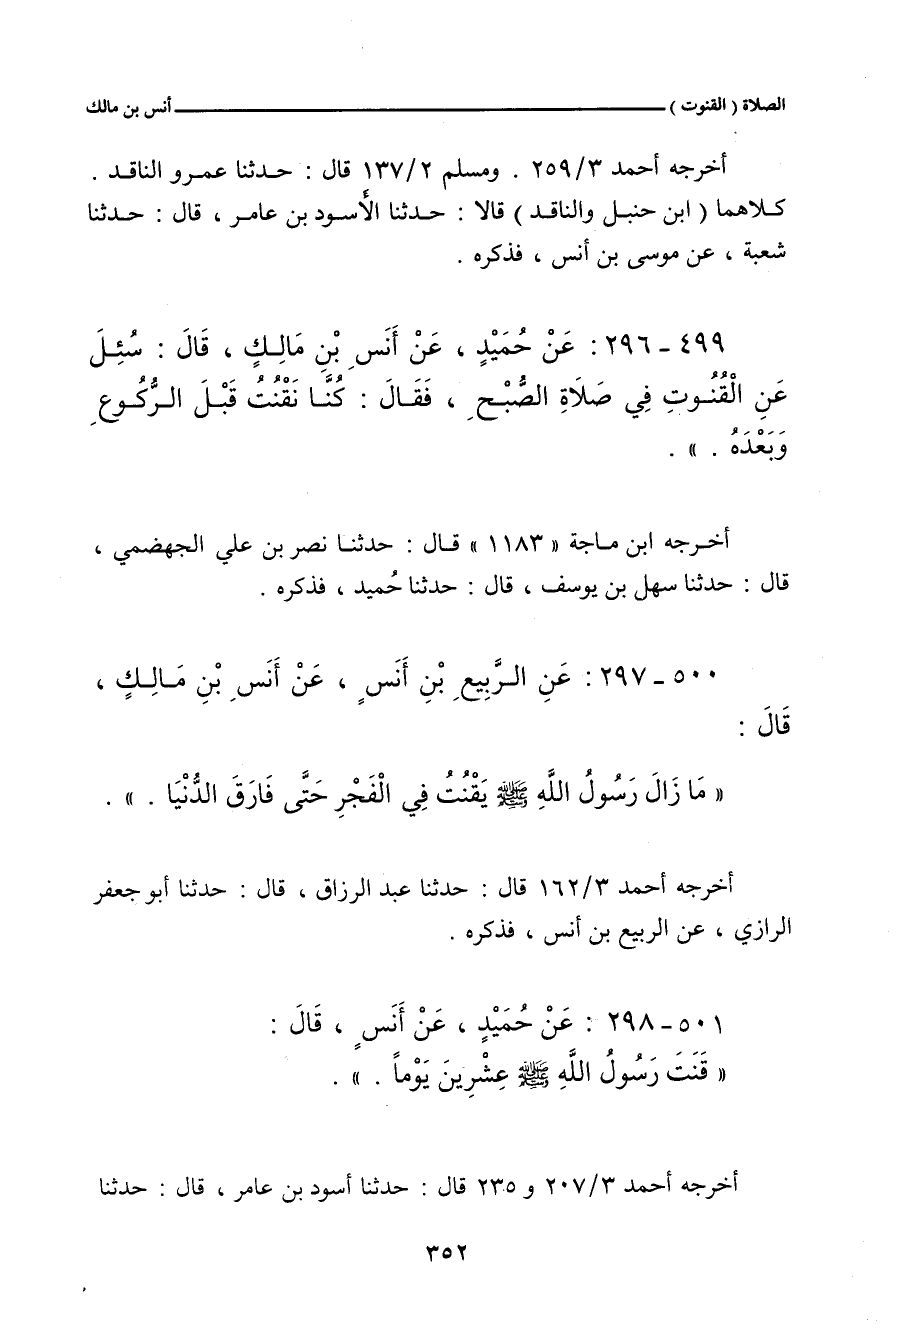 الصلاة ( القنوت ) ــــــــــــــــــــ أنس بن مالك
أخرجه أحمد ٢٥٩/٣ . ومسلم ١٣٧/٢ قال : حدثنا عمرو الناقد .
كلاهما ( ابن حنبل والناقد ) قالا : حدثنا الأسود بن عامر ، قال : حدثنا
شعبة ، عن موسى بن أنس ، فذكره .
٤٩٩ ـ ٢٩٦ : عَنْ حُمَيْدٍ ، عَنْ أَنَسِ بْنِ مَالِكٍ ، قَالَ : سُئِلَ
عَنِ الْقُنُوتِ فِي صَلَاةِ الصُّبْحِ ، فَقَالَ : كُنَّا نَقْنُتُ قَبْلَ الرُّكُوعِ
وَبَعْدَهُ . » .
أخرجه ابن ماجة « ١١٨٣ » قال : حدثنا نصر بن علي الجهضمي ،
قال : حدثنا سهل بن يوسف ، قال : حدثنا حُميد ، فذكره .
٥٠٠ ـ ٢٩٧ : عَنِ الرَّبِيعِ بْنِ أَنَسٍ ، عَنْ أَنَسِ بْنِ مَالِكٍ ،
قَالَ :
« مَا زَالَ رَسُولُ اللَّهِ ﷺ يَقْنُتُ فِي الْفَجْرِ حَتَّى فَارَقَ الدُّنْيَا . » .
أخرجه أحمد ١٦٢/٣ قال : حدثنا عبد الرزاق ، قال : حدثنا أبو جعفر
الرازي ، عن الربيع بن أنس ، فذكره .
٥٠١ ـ ٢٩٨ : عَنْ حُمَيْدٍ ، عَنْ أَنَسٍ ، قَالَ :
« قَنَتَ رَسُولُ اللَّهِ ﷺ عِشْرِينَ يَوْماً . » .
أخرجه أحمد ٢٠٧/٣ و ٢٣٥ قال : حدثنا أسود بن عامر ، قال : حدثنا
٣٥٢